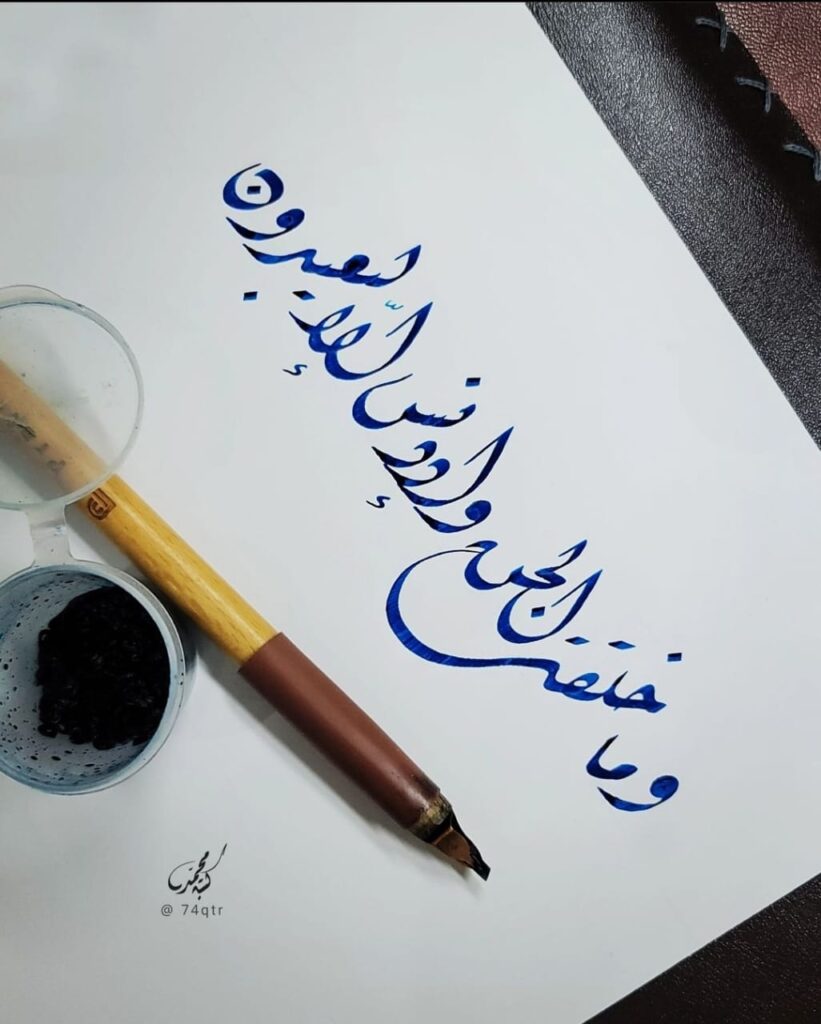 وما خلقت الجن والإنس إلا ليعبدون
كتبه محمد
@ 74qtr